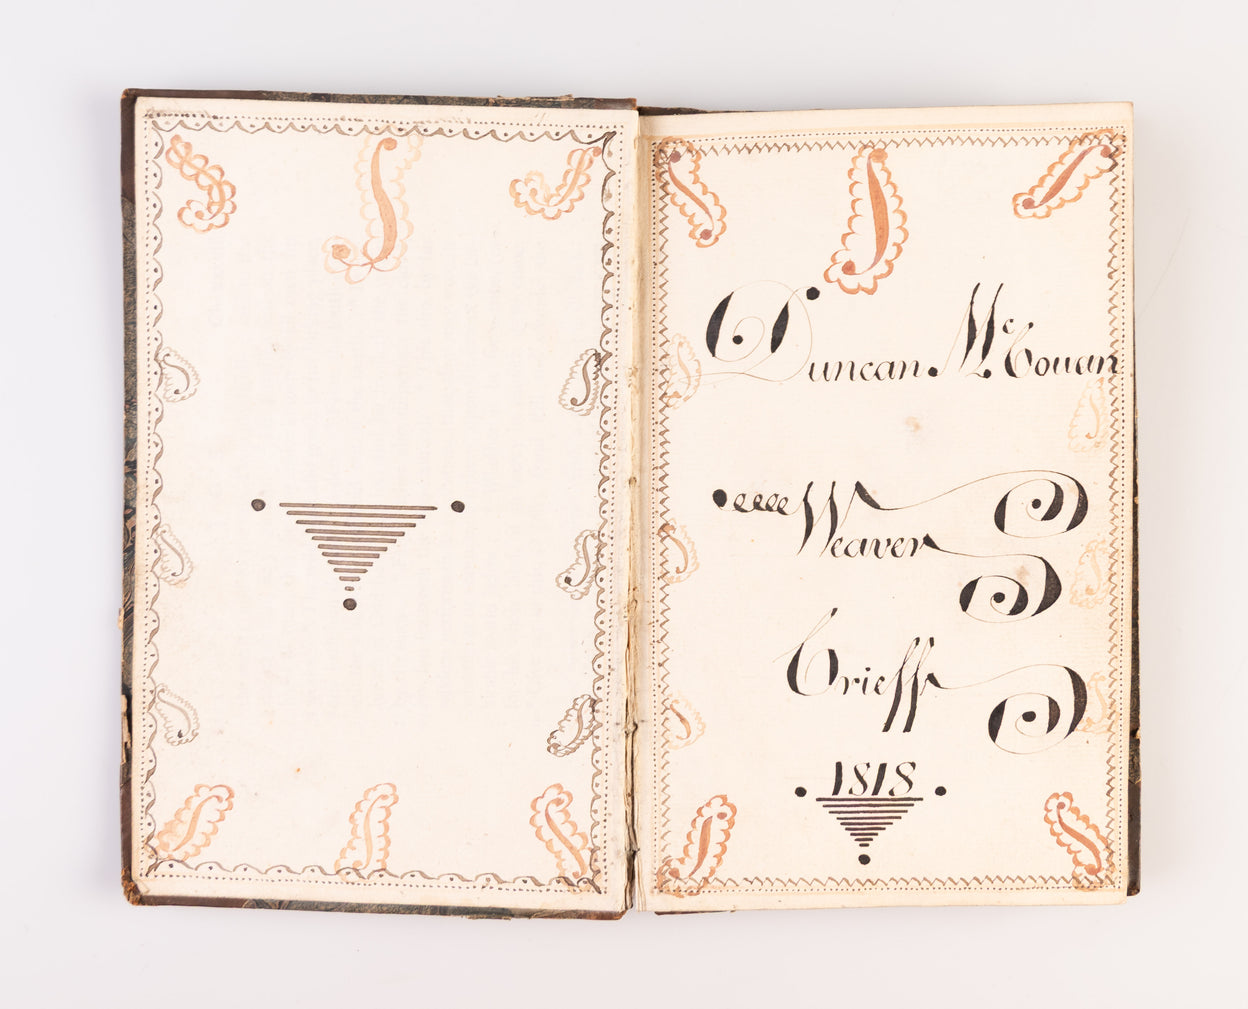 Duncan McCouan
Weaver
Crieff
1818